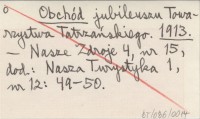 o
Obchód jubileuszu Towa-
rzystwa Tatrzańskiego. 1913.
— Nasze Zdroje 4, nr 15,
dod.: Nasza Turystyka 1,
nr 12: 49-50.